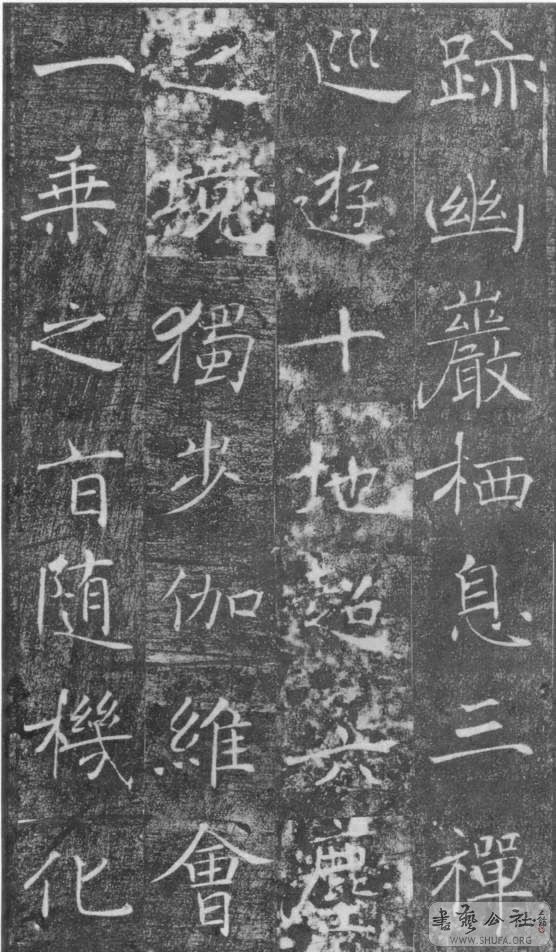 跡幽巖栖息三禪
巡遊十地超六塵
之境獨步伽維會
一乘之旨随機化
書藝公社
WWW.SHUFA.ORG